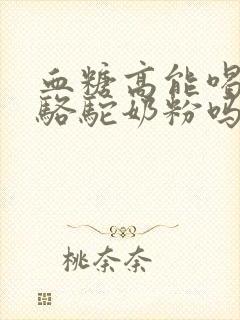 血糖高能喝
骆驼奶粉吗
桃奈奈